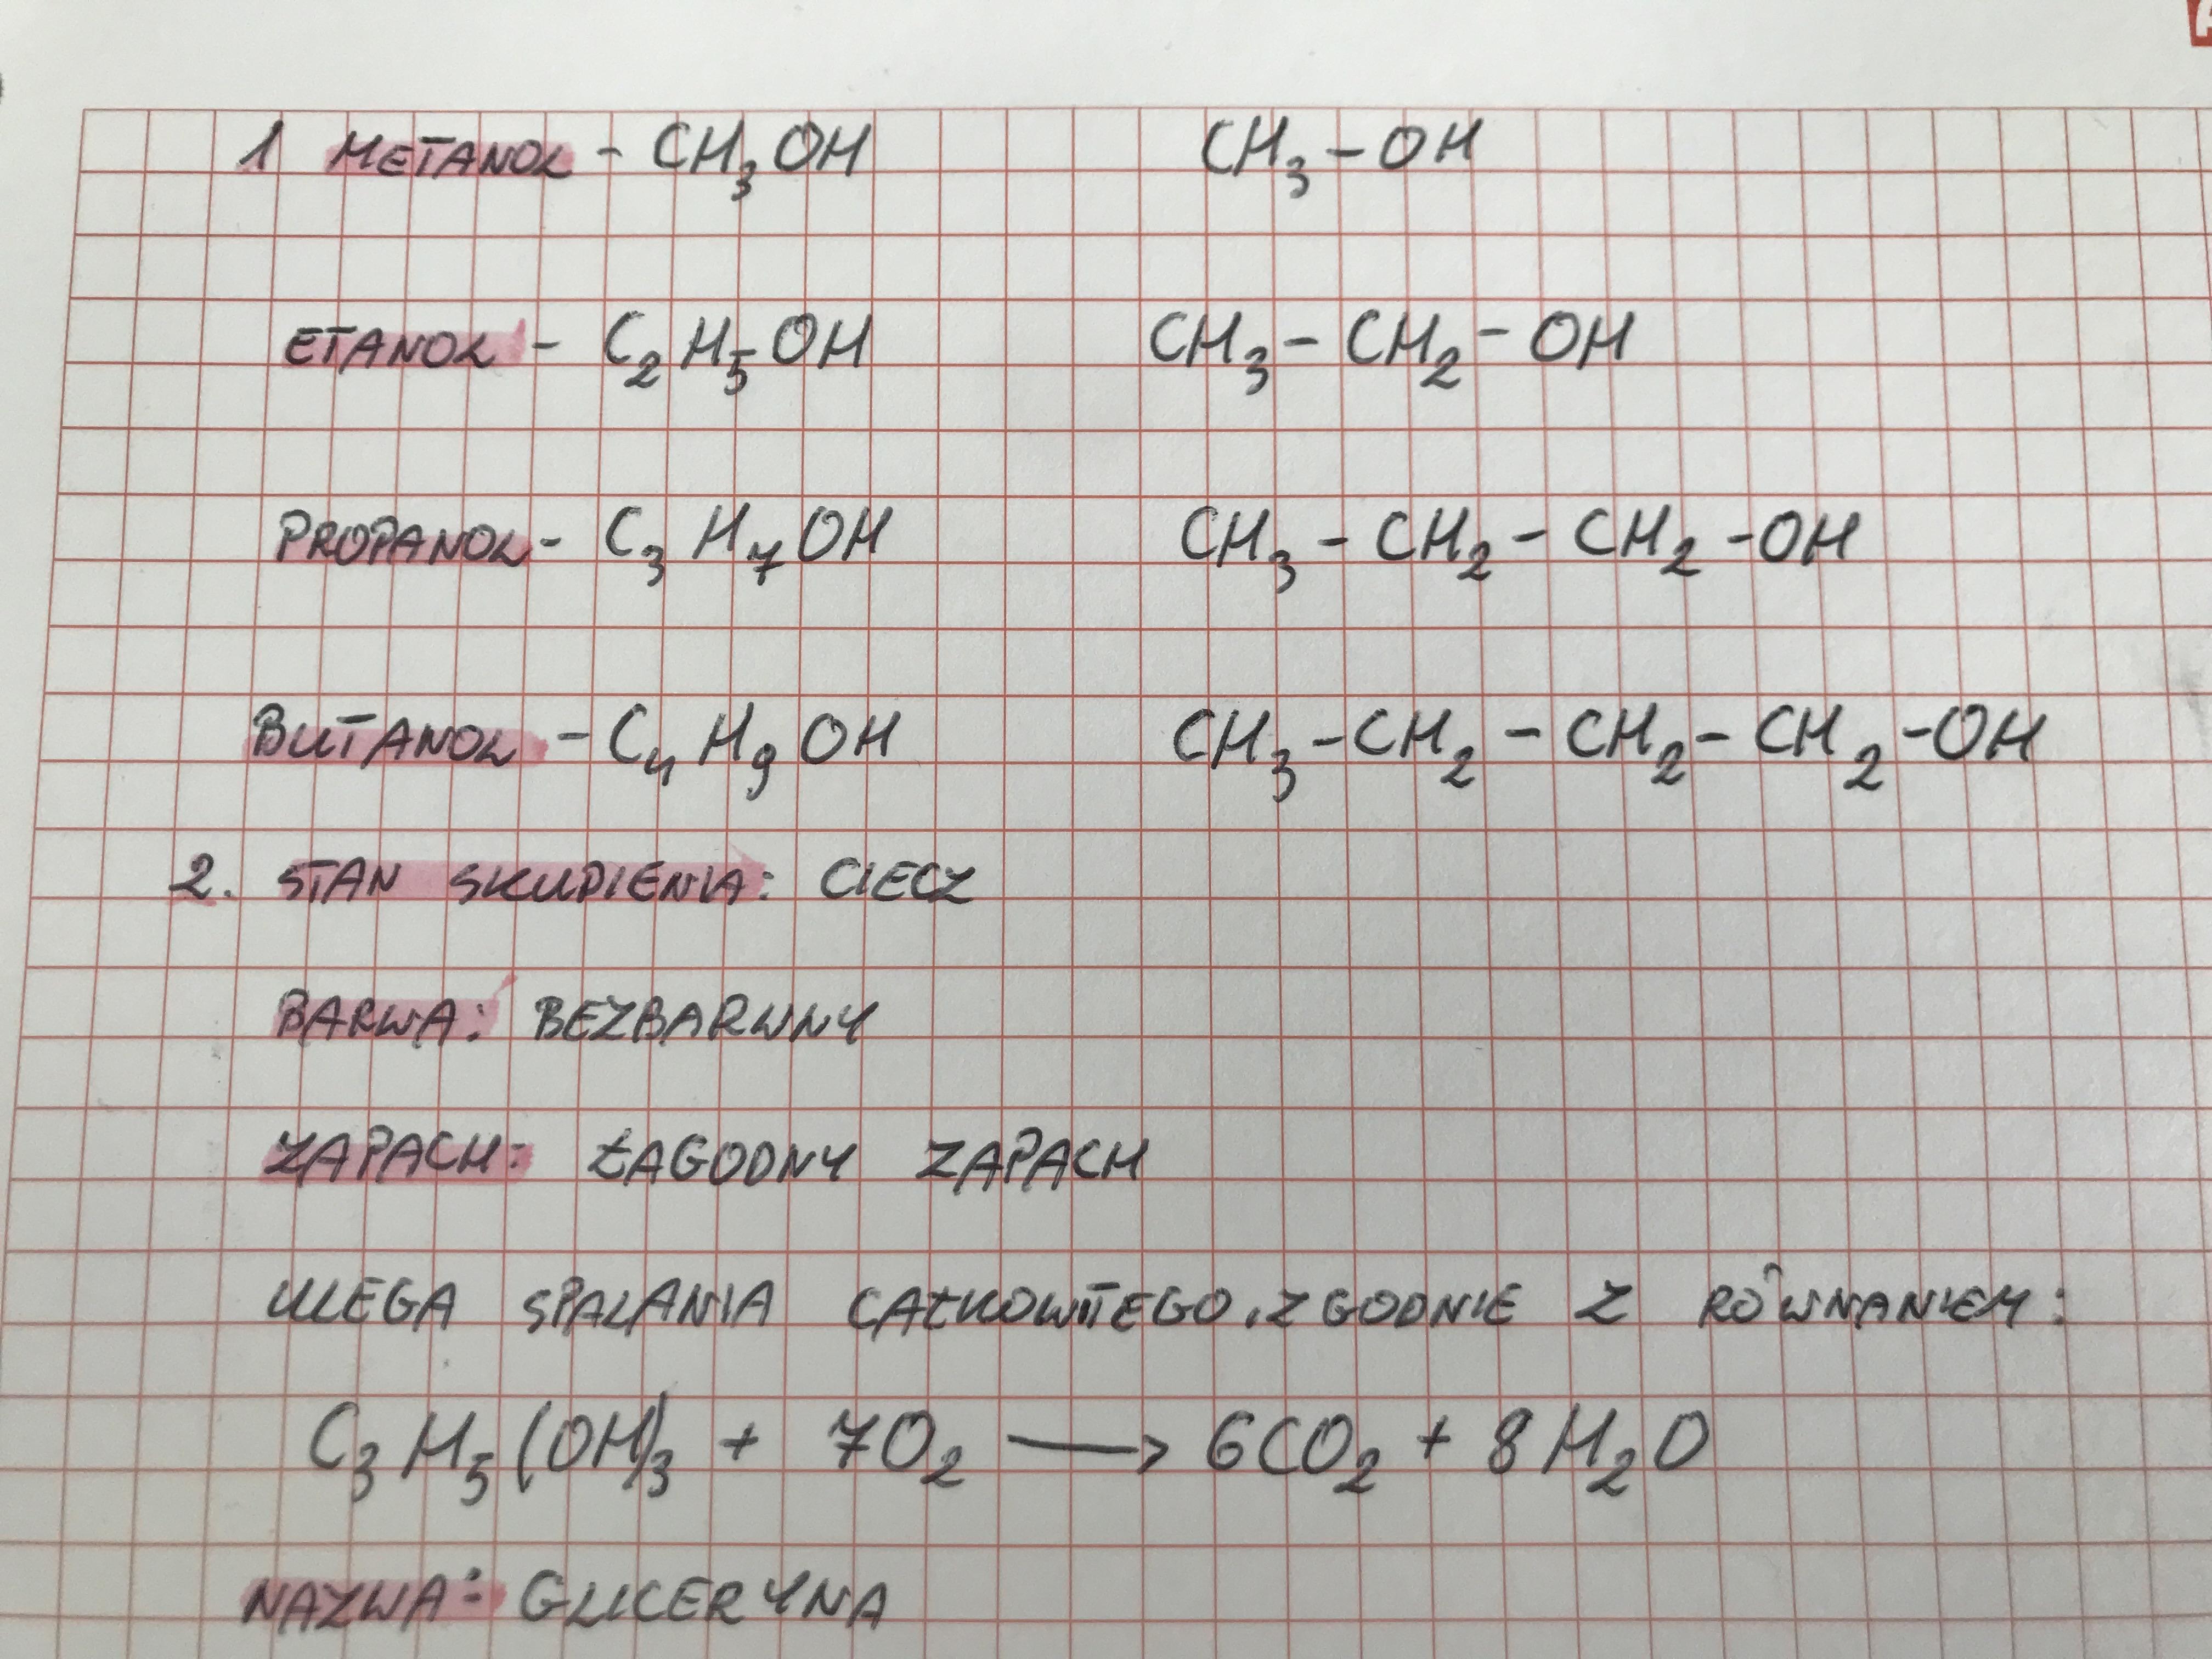 1 METANOL - CH₃OH CH₃-OH
ETANOL - C₂H₅OH CH₃-CH₂-OH
PROPANOL - C₃H₇OH CH₃-CH₂-CH₂-OH
BUTANOL - C₄H₉OH CH₃-CH₂-CH₂-CH₂-OH
2. STAN SKUPIENIA: CIECZ
BARWA: BEZBARWNY
ZAPACH: ŁAGODNY ZAPACH
ULEGA SPALANIA CAŁKOWITEGO.ZGODNIE Z RÓWNANIEM:
C₃H₅(OH)₃ + 7O₂ ⟶ 6CO₂ + 8H₂O
NAZWA: GLICERYNA